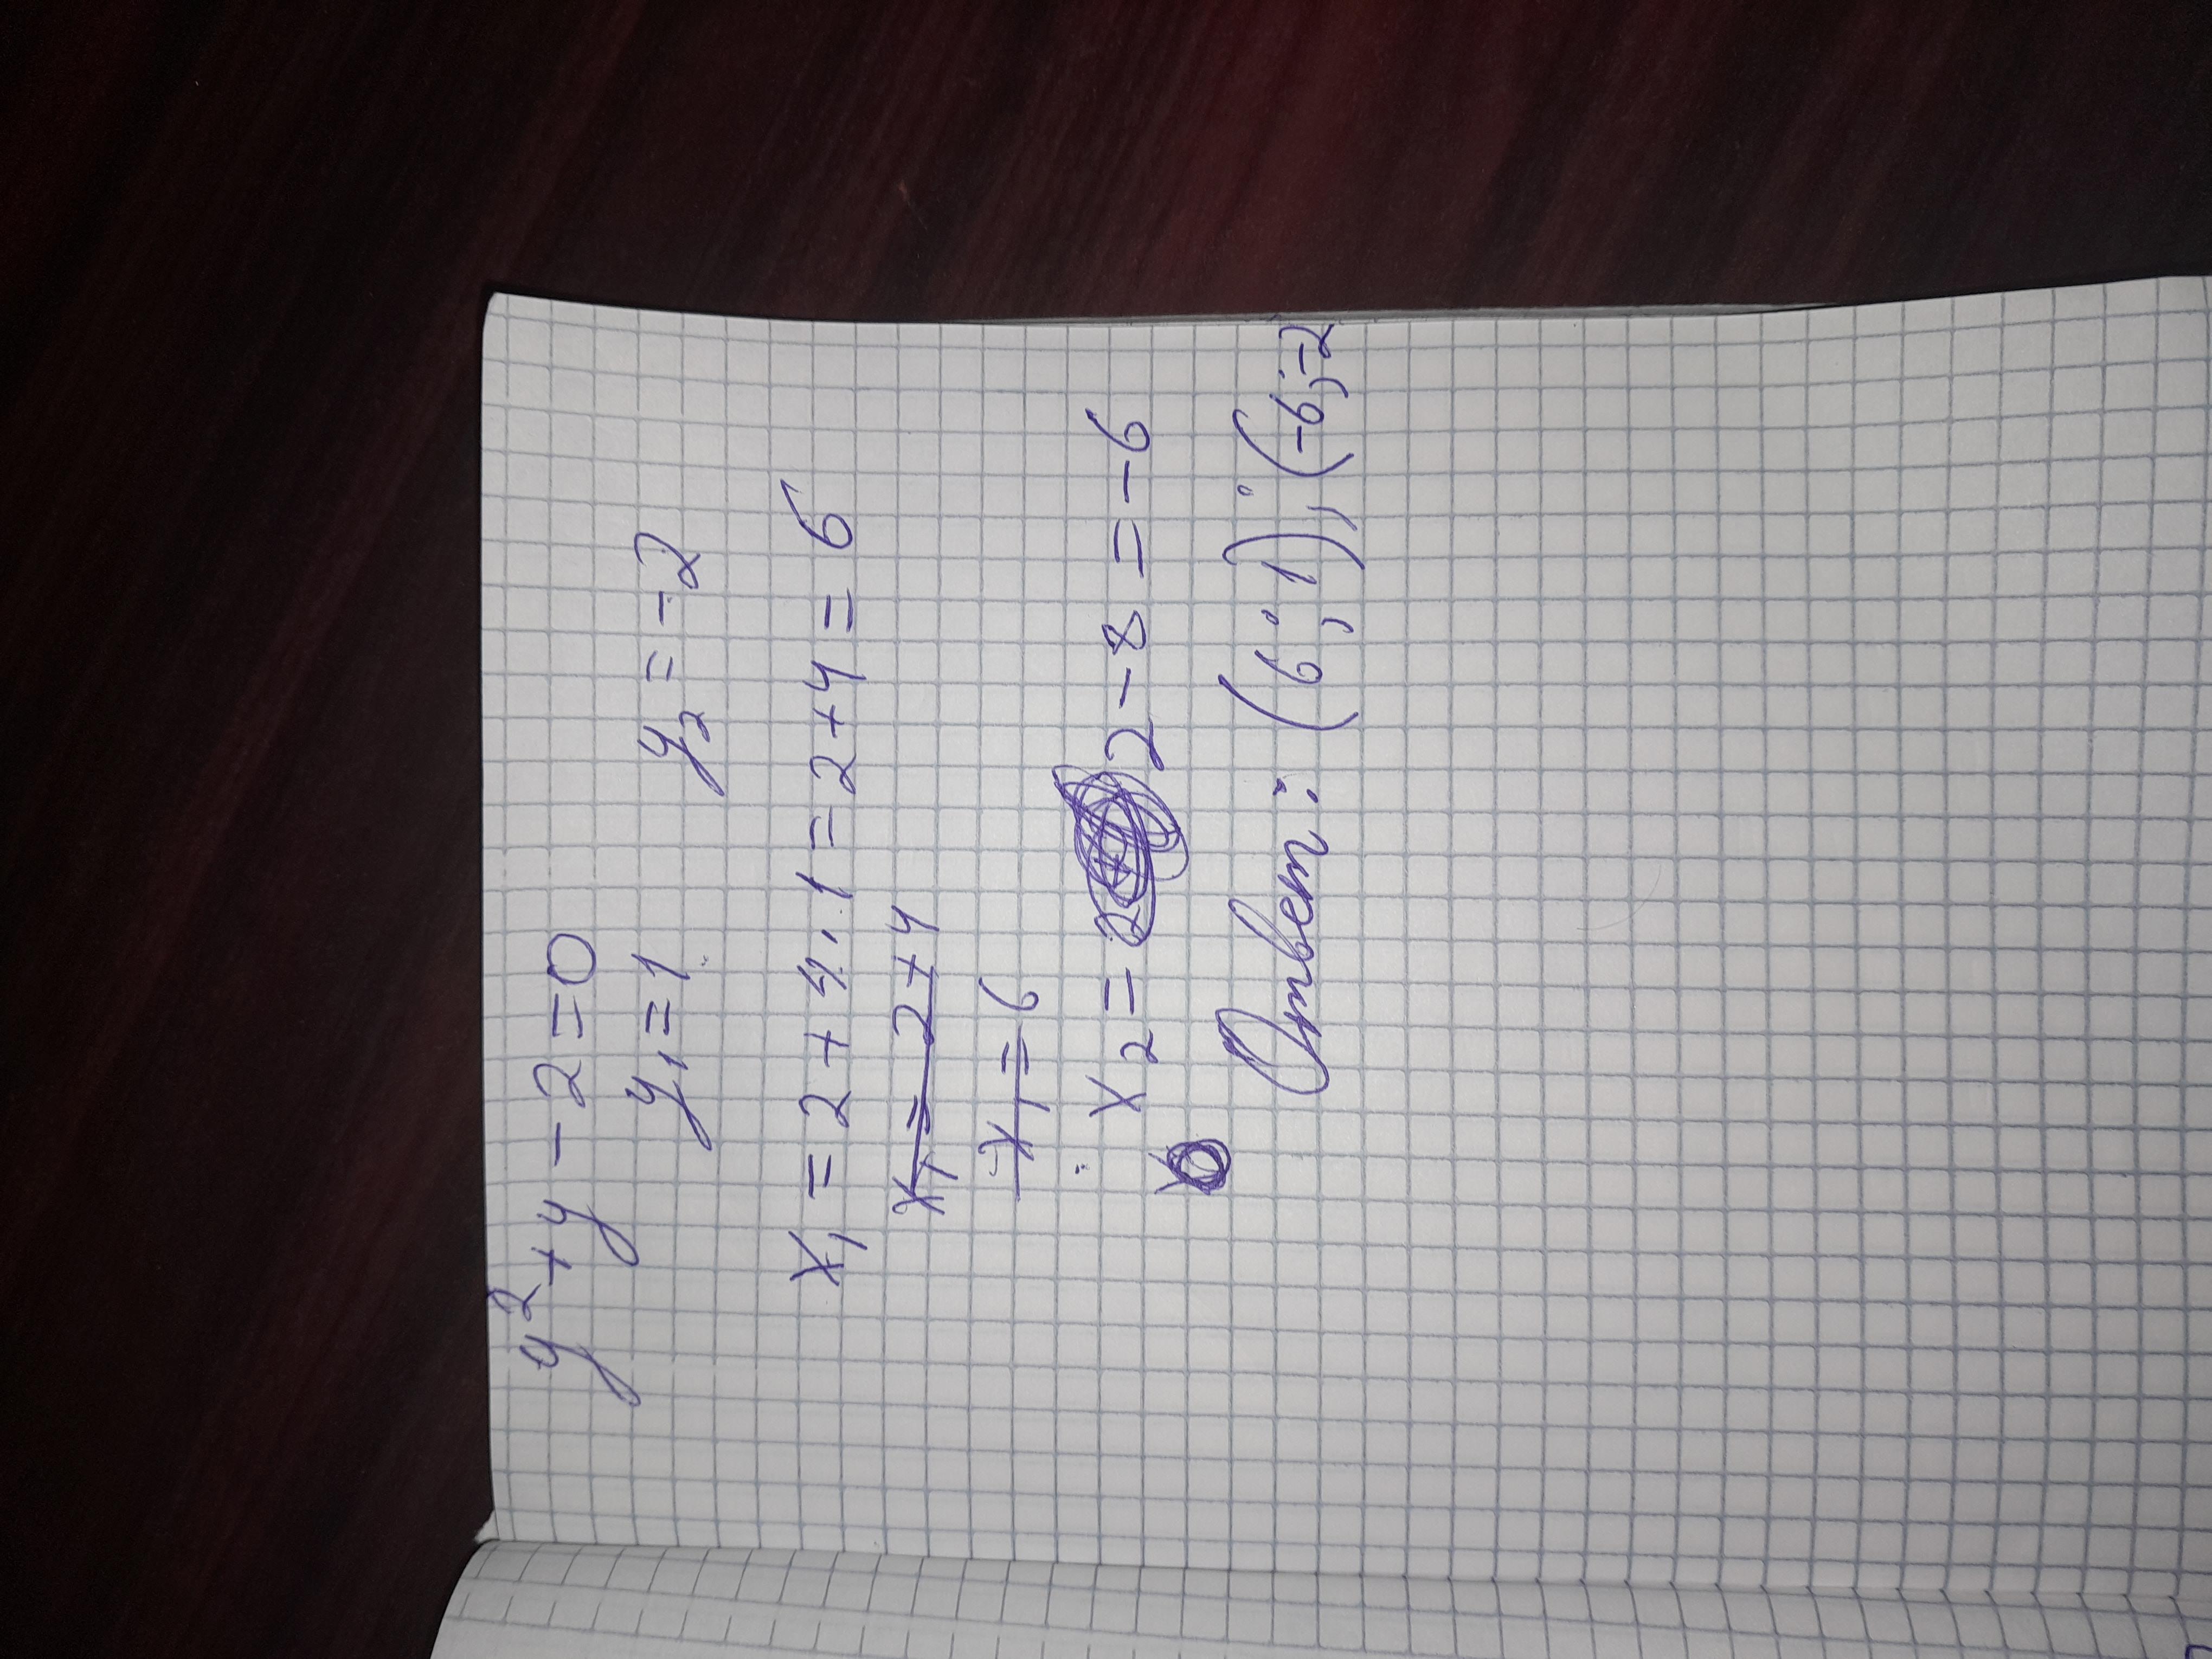 y² + y - 2 = 0
y₁ = 1 y₂ = -2
x₁ = 2 + 4 · 1 = 2 + 4 = 6
x₁ = 2 + 4
x₁ = 6
x₂ = 2 - 8 = -6
Ответ: (6; 1); (-6; -2